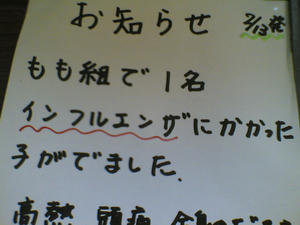 お知らせ 2/13発
もも組で1名
インフルエンザにかかった
子がでました.
高熱 頭痛